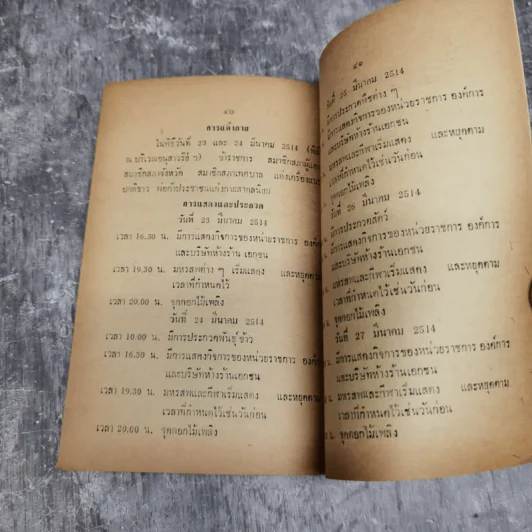 ๔๐
การแต่งกาย
ในพิธีวันที่ 23 และ 24 มีนาคม 2514
ณ บริเวณอนุสาวรีย์ ฯ ข้าราชการ
สมาชิกสภาจังหวัด สมาชิกสภาเทศบาล
พ่อค้าประชาชนแต่งกายสากลนิยม
การแสดงและประกวด
วันที่ 23 มีนาคม 2514
เวลา 16.30 น. มีการแสดงกิจการของหน่วยราชการ องค์การ
และบริษัทห้างร้านเอกชน
เวลา 19.30 น. มหรสพต่าง ๆ เริ่มแสดง และหยุดตาม
เวลาที่กำหนดไว้
เวลา 20.00 น. จุดดอกไม้เพลิง
วันที่ 24 มีนาคม 2514
เวลา 10.00 น. มีการประกวดพันธุ์ข้าว
เวลา 16.30 น. มีการแสดงกิจการของหน่วยราชการ องค์การ
และบริษัทห้างร้านเอกชน
เวลา 19.30 น. มหรสพและกีฬาเริ่มแสดง และหยุดตาม
เวลาที่กำหนดไว้เช่นวันก่อน
เวลา 20.00 น. จุดดอกไม้เพลิง
๔๑
วันที่ 25 มีนาคม 2514
มีการประกวดพืชต่าง ๆ
มีการแสดงกิจการของหน่วยราชการ องค์การ
และบริษัทห้างร้านเอกชน
มหรสพและกีฬาเริ่มแสดง และหยุดตาม
เวลาที่กำหนดไว้เช่นวันก่อน
จุดดอกไม้เพลิง
วันที่ 26 มีนาคม 2514
มีการประกวดสัตว์
มีการแสดงกิจการของหน่วยราชการ องค์การ
และบริษัทห้างร้านเอกชน
น. มหรสพและกีฬาเริ่มแสดง และหยุดตาม
เวลาที่กำหนดไว้เช่นวันก่อน
น. จุดดอกไม้เพลิง
วันที่ 27 มีนาคม 2514
น. มีการแสดงกิจการของหน่วยราชการ องค์การ
และบริษัทห้างร้านเอกชน
น. มหรสพและกีฬาเริ่มแสดง และหยุดตาม
เวลาที่กำหนดไว้เช่นวันก่อน
น. จุดดอกไม้เพลิง